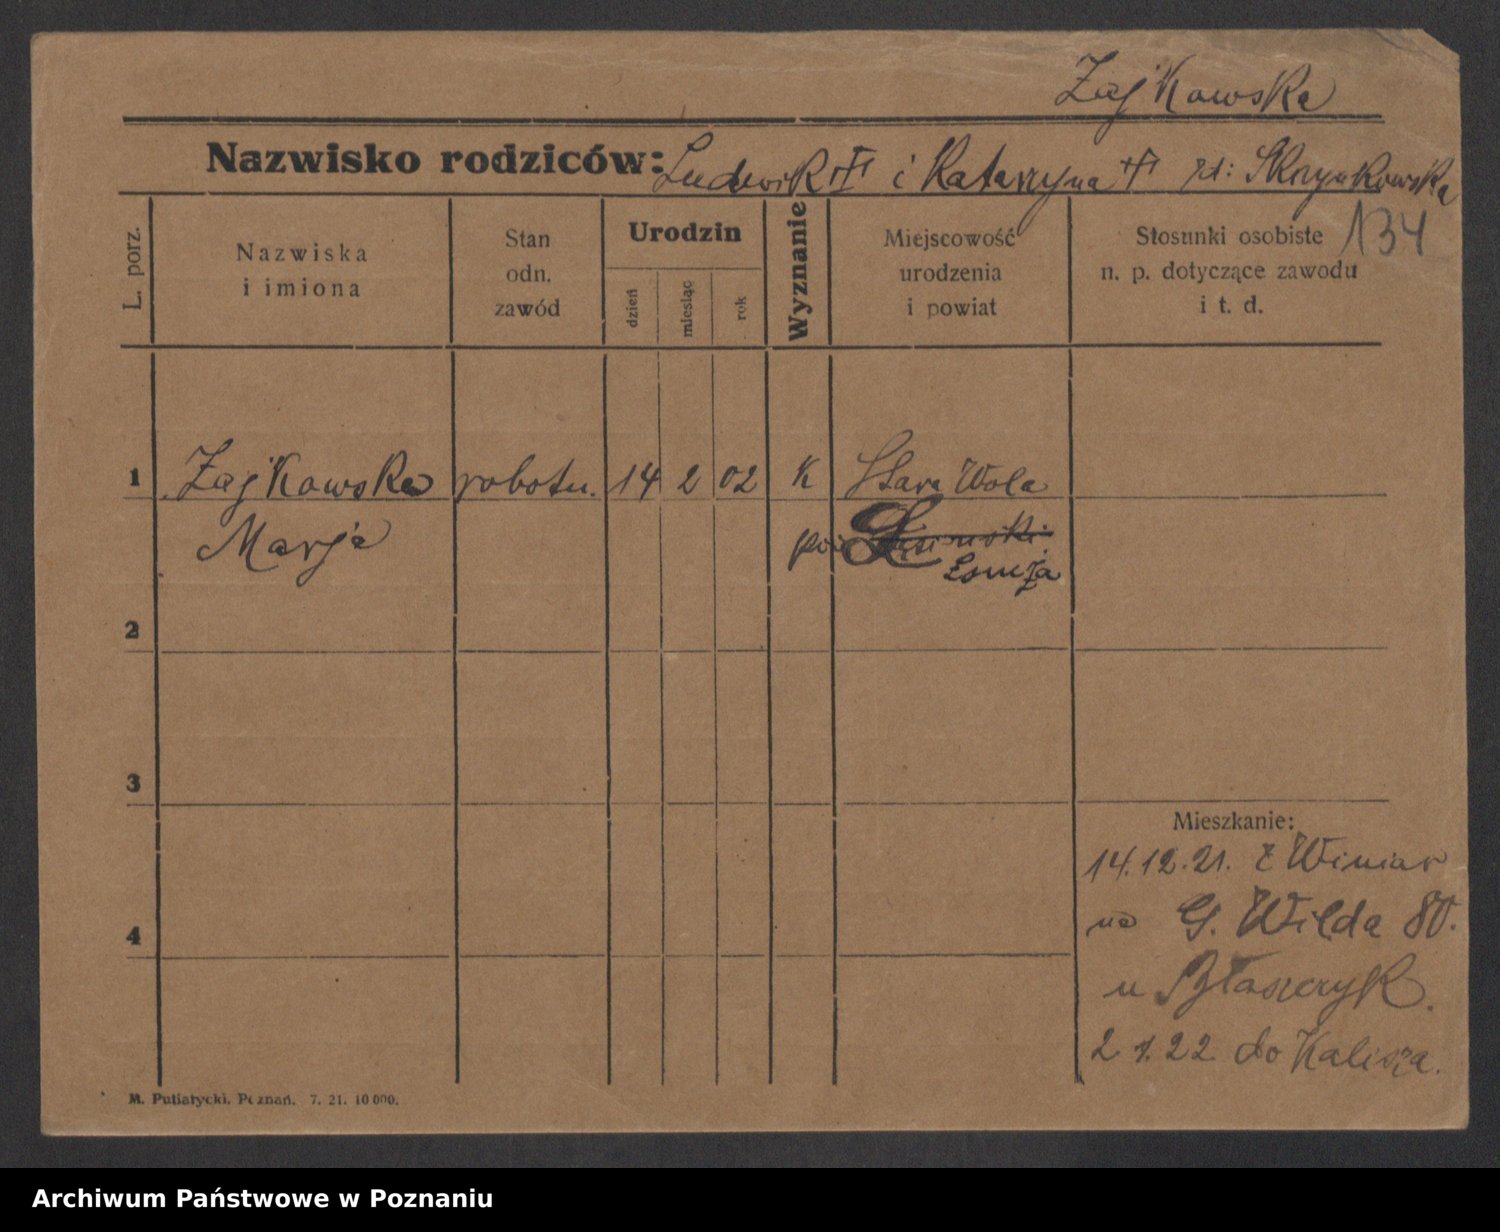 Zajkowska
Nazwisko rodziców: Ludwik i Katarzyna
134
L. porz.
Nazwiska
i imiona
Stan
odn.
zawód
Urodzin
dzień
miesiąc
rok
Wyznanie
Miejscowość
urodzenia
i powiat
Stosunki osobiste
n. p. dotyczące zawodu
i t. d.
1 Zajkowska robotn. 14 2 02 K Stara Wola
Marja pow
Łomża
2
3
4
Mieszkanie:
14.12.21. z Winiar
na G. Wilda 80.
u Błaszczyk.
2 1.22 do Kalisza.
M. Putiatycki. Poznań. 7. 21. 10 000.
Archiwum Państwowe w Poznaniu